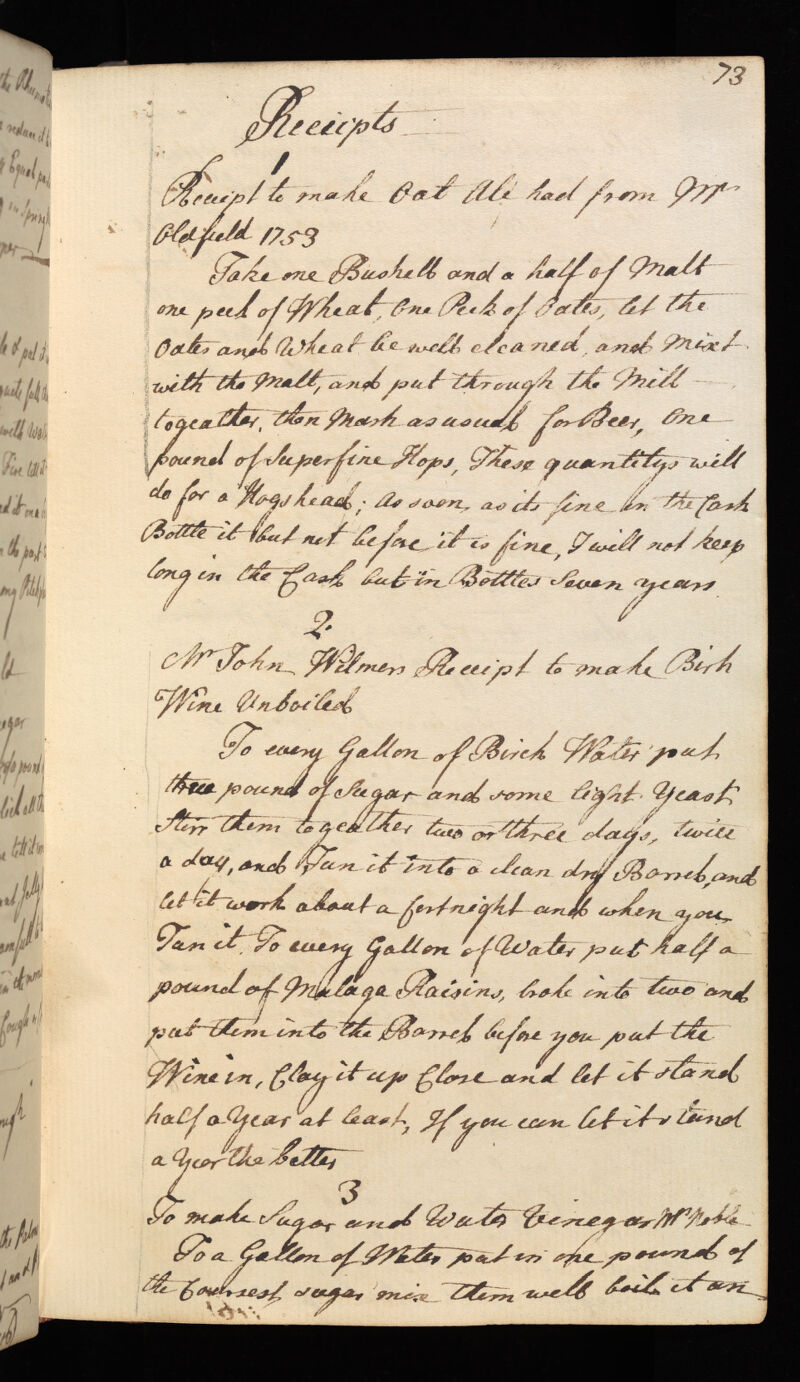 73
Receipts
1
Receipt to make Oat Ale had from Mr
Oldfield 1753
Take one Bushell and a half of Malt
one peck of Wheat, One Peck of Oates, let the
Oates and Wheat be well cleaned, and Mixt
with the Malt, and put through the Mill
togeather, then Mash as usual for Beer, One
pound of Superfine Hops, These quantitys will
do for a Hogshead; as soon as its fine in the Cask
Bottle it but not before it is fine, I will not keep
long in the Cask but in Bottles Seven years
2
Mr John Wilmers Receipt to make Birh
Wine Unboiled
To every Gallon of Birch Water put
three pound of Sugar and some light Yeast
Stirr them togeather two or three days, twice
a day, and Tun it into a clean dry Barrel, and
let it work about a fortnight and when you
Tun it. To every Gallon of Water put half a
pound of Malaga Raisins, broke into two and
put them into the Barrel before you put the
Wine in, Clay it up Close and let it stand
half a Year at least, If you can let it stand
a Year the better
3
To make Sugar and Water Vinegar Mr Noble
To a Gallon of Water put in one pound of
the Coursest sugar mix them well boil it an